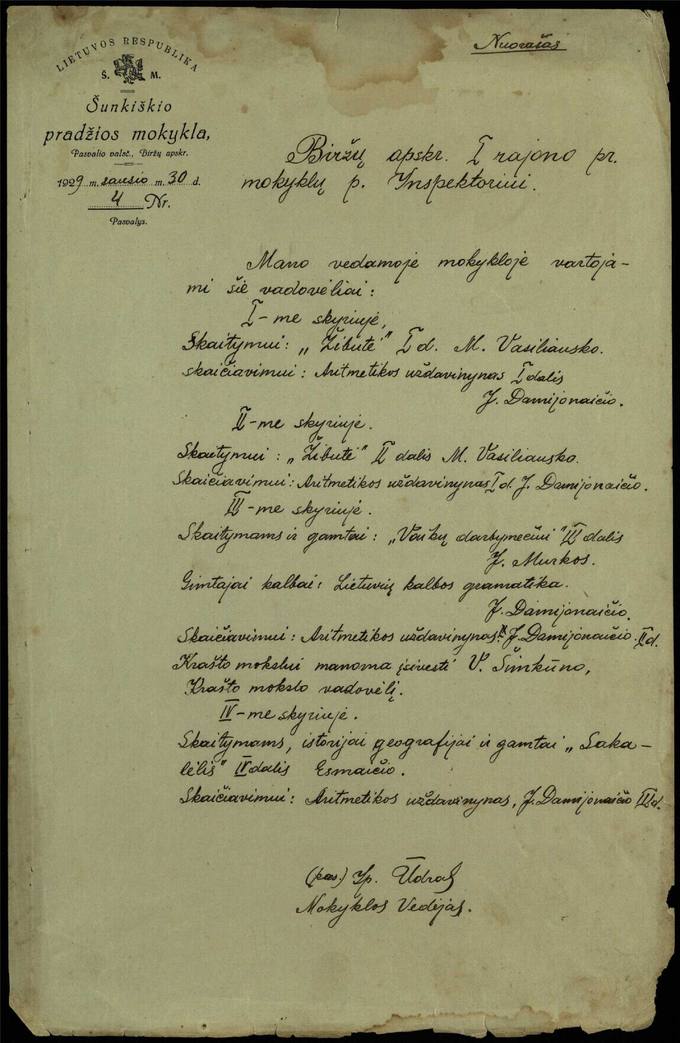 Nuorašas
LIETUVOS RESPUBLIKA
Š. M.
Šunkiškio
pradžios mokykla,
Pasvalio valsč., Biržų apskr.
1929 m. sausio m. 30 d.
4 Nr.
Pasvalys.
Biržų apskr. I rajono pr.
mokyklų p. Inspektoriui.
Mano vedamoje mokykloje vartoja-
mi šie vadovėliai:
I-me skyriuje,
Skaitymui: „Žibutė" I d. M. Vasiliausko.
skaičiavimui: Aritmetikos uždavinynas I dalis
J. Damijonaičio.
II-me skyriuje.
Skaitymui: „Žibutė" II dalis M. Vasiliausko.
Skaičiavimui: Aritmetikos uždavinynas I d. J. Damijonaičio.
III-me skyriuje.
Skaitymams ir gamtai: „Vaikų darbymečiui" III dalis
J. Murkos.
Gimtajai kalbai: Lietuvių kalbos gramatika.
J. Damijonaičio.
Skaičiavimui: Aritmetikos uždavinynas J. Damijonaičio. II d.
Krašto mokslui manoma įsivesti V. Šimkūno,
Krašto mokslo vadovėlį.
IV-me skyriuje.
Skaitymams, istorijai geografijai ir gamtai „Saka-
lėlis" IV dalis Esmaičio.
Skaičiavimui: Aritmetikos uždavinynas, J. Damijonaičio III d.
(pas.) Ip. Ūdras
Mokyklos Vedėjas.